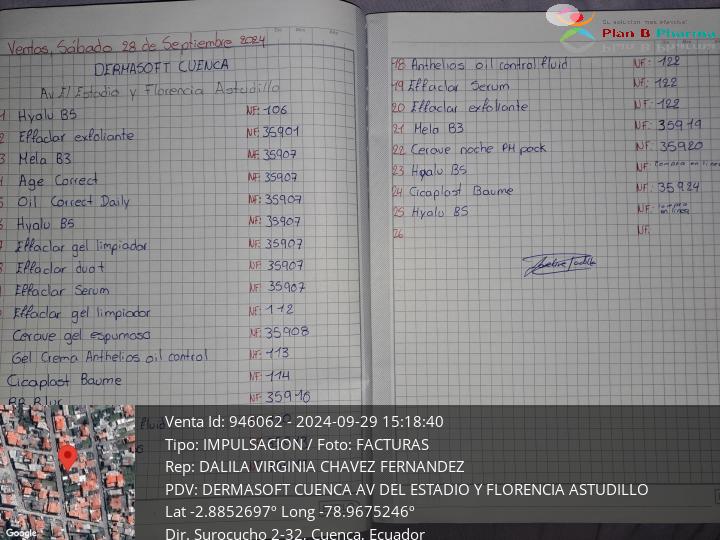 Ventas, Sábado 28 de Septiembre 2024
DERMASOFT CUENCA
Av El Estadio y Florencia Astudillo
1 Hyalu B5 NF: 106
2 Effaclar exfoliante NF: 35901
3 Mela B3 NF: 35907
4 Age Correct NF: 35907
5 Oil Correct Daily NF: 35907
6 Hyalu B5 NF: 35907
7 Effaclar gel limpiador NF: 35907
8 Effaclar duot NF: 35907
Effaclar Serum NF: 35907
Effaclar gel limpiador NF: 112
Cerave gel espumoso NF: 35908
Gel Crema Anthelios oil control NF: 113
Cicaplast Baume NF: 114
BB Blur NF: 35910
fluid
18 Anthelios oil control fluid NF: 122
19 Effaclar Serum NF: 122
20 Effaclar exfoliante NF: 122
21 Mela B3 NF: 35919
22 Cerave noche PH pack NF: 35920
23 Hyalu B5 NF: Compra en linea
24 Cicaplast Baume NF: 35924
25 Hyalu B5 NF: Compra en linea
26 NF:
Su solución más efectiva!
Plan B Pharma
Venta Id: 946062 - 2024-09-29 15:18:40
Tipo: IMPULSACION / Foto: FACTURAS
Rep: DALILA VIRGINIA CHAVEZ FERNANDEZ
PDV: DERMASOFT CUENCA AV DEL ESTADIO Y FLORENCIA ASTUDILLO
Lat -2.8852697º Long -78.9675246º
Dir. Surocucho 2-32, Cuenca, Ecuador
Google